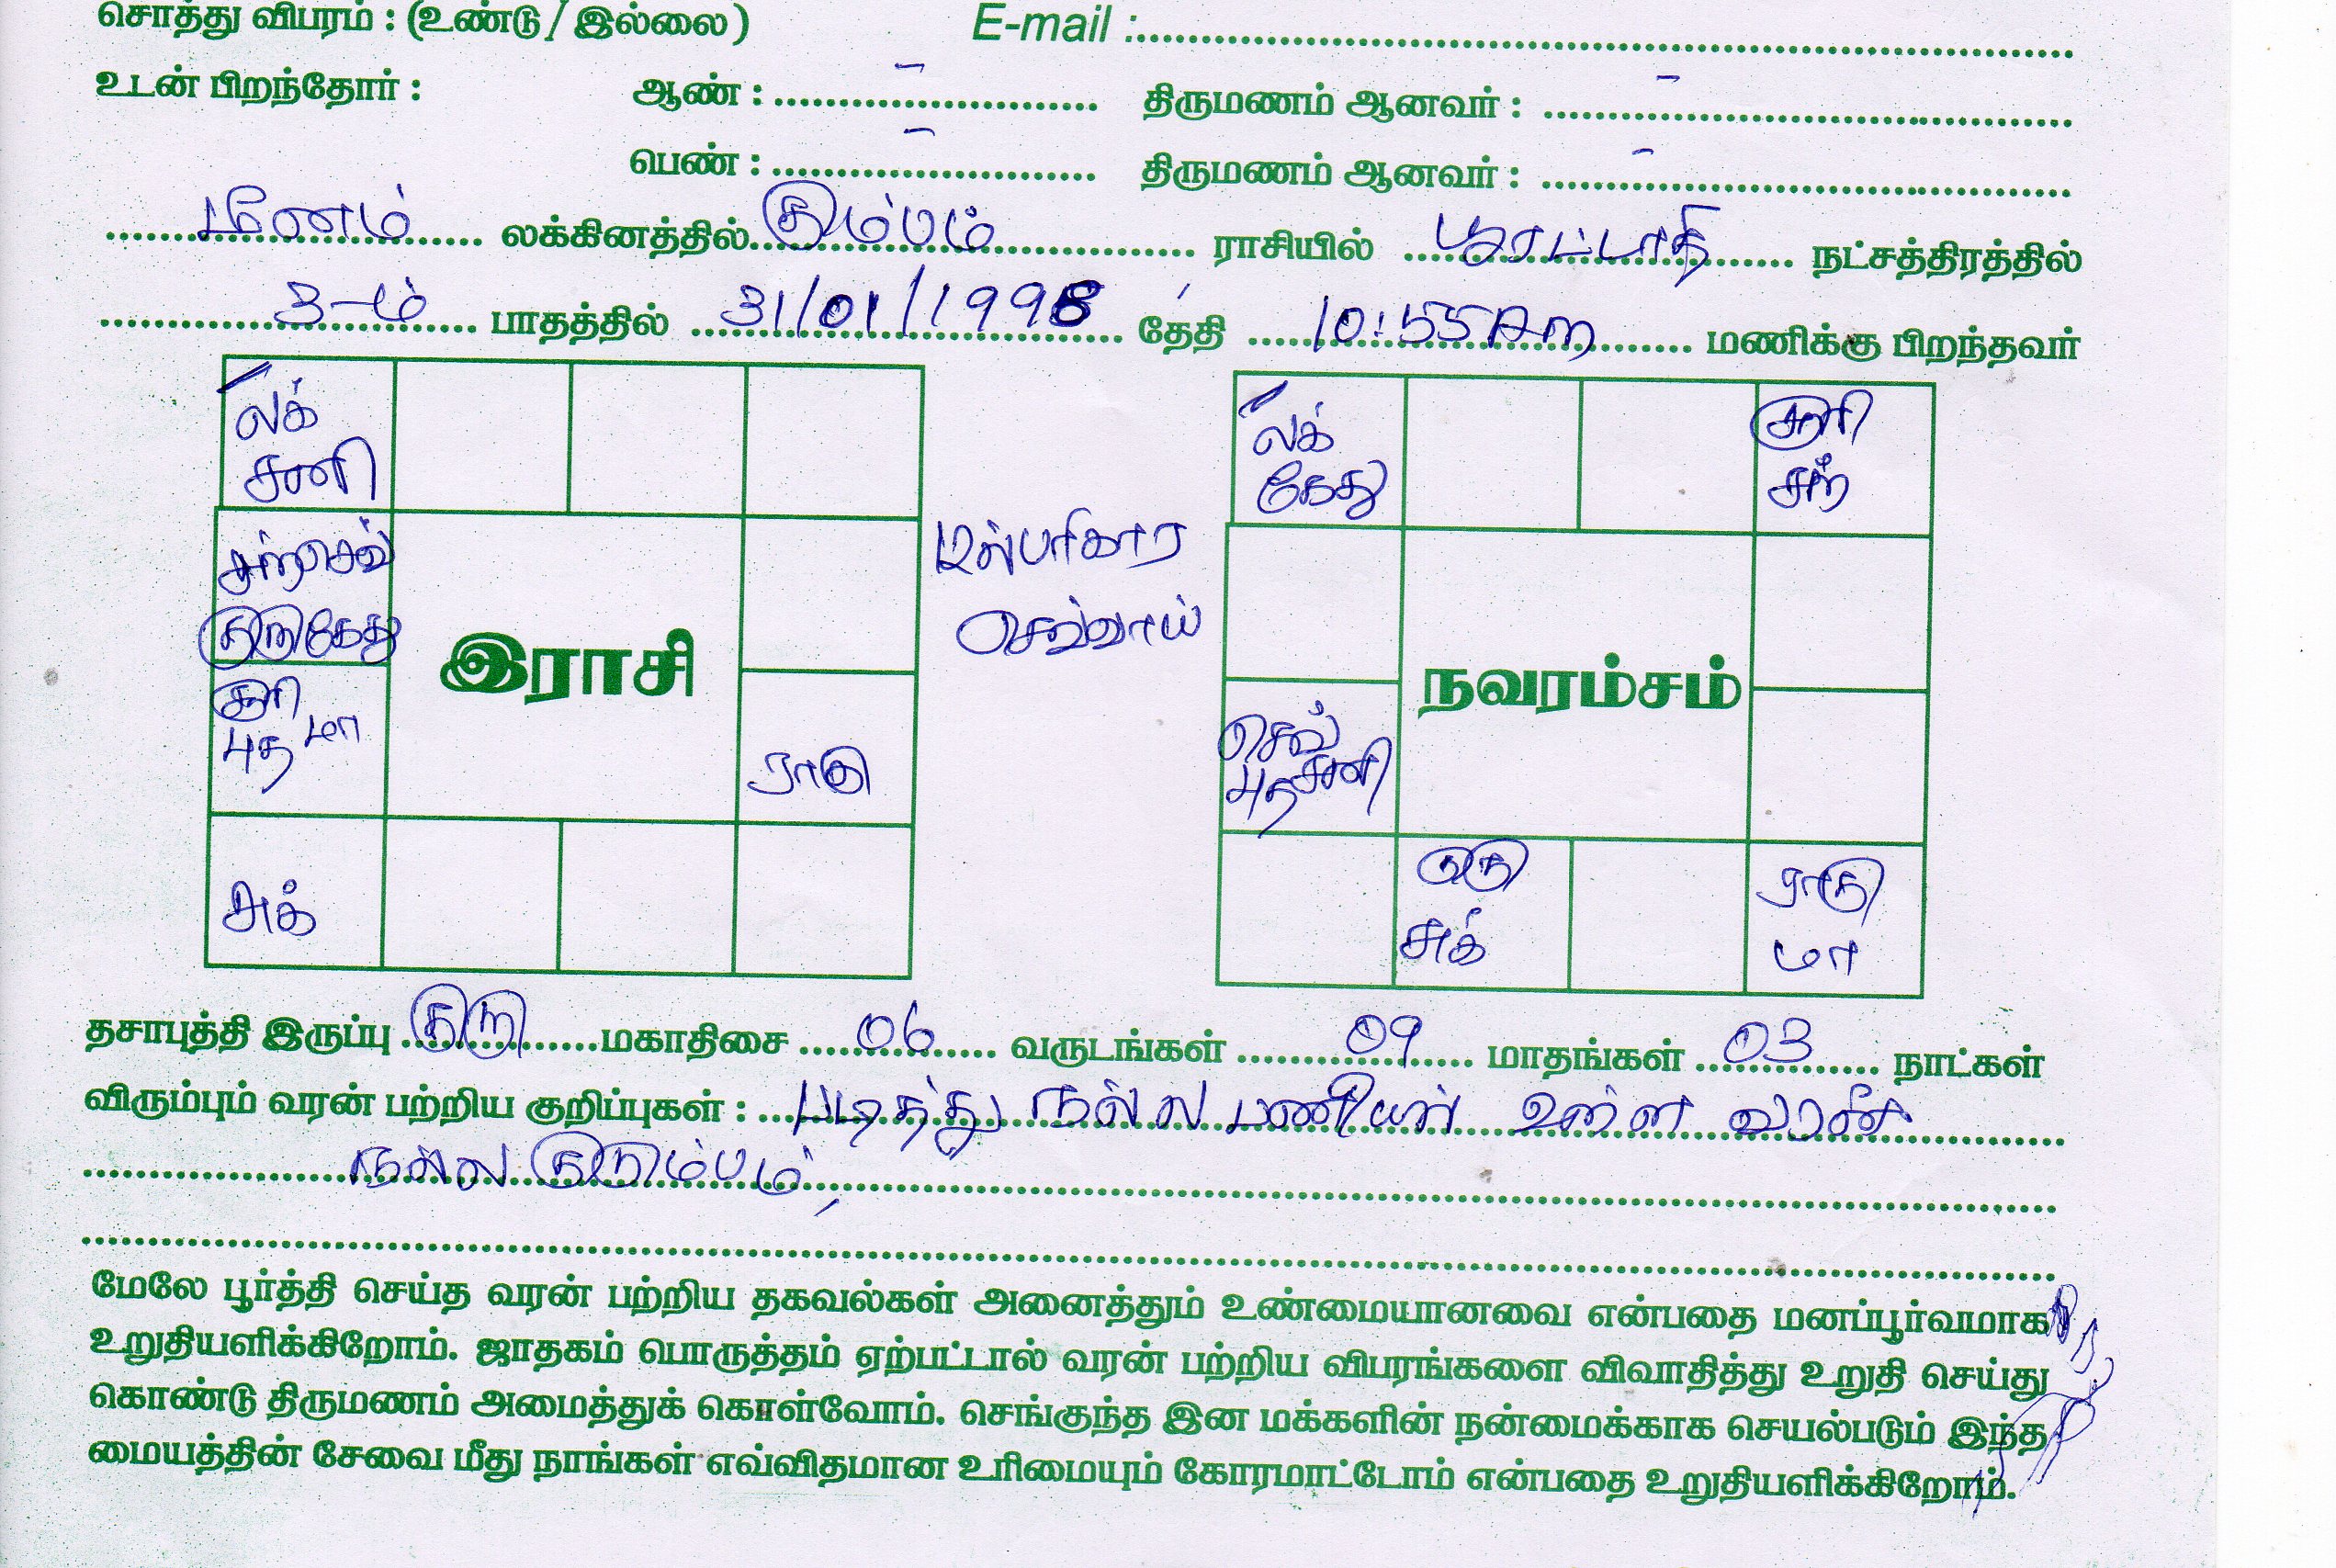 சொத்து விபரம் : (உண்டு / இல்லை) E-mail :
உடன் பிறந்தோர் : ஆண் : - திருமணம் ஆனவர் : -
பெண் : - திருமணம் ஆனவர் : -
மீனம் லக்கினத்தில் கும்பம் ராசியில் பூரட்டாதி நட்சத்திரத்தில்
3-ம் பாதத்தில் 31/01/1998 தேதி 10:55 Am மணிக்கு பிறந்தவர்
லக்
சனி
சந் செவ்
குரு கேது
சூரி
புத மா
சுக்
இராசி
ராகு
பரிகார
செவ்வாய்
லக்
கேது
சூரி
சந்
செவ்
புத சனி
நவரம்சம்
குரு
சுக்
ராகு
மா
தசாபுத்தி இருப்பு குரு மகாதிசை 06 வருடங்கள் 09 மாதங்கள் 03 நாட்கள்
விரும்பும் வரன் பற்றிய குறிப்புகள் : படித்து நல்ல பணியில் உள்ள வரன்
நல்ல குடும்பம்,
மேலே பூர்த்தி செய்த வரன் பற்றிய தகவல்கள் அனைத்தும் உண்மையானவை என்பதை மனப்பூர்வமாக
உறுதியளிக்கிறோம். ஜாதகம் பொருத்தம் ஏற்பட்டால் வரன் பற்றிய விபரங்களை விவாதித்து உறுதி செய்து
கொண்டு திருமணம் அமைத்துக் கொள்வோம். செங்குந்த இன மக்களின் நன்மைக்காக செயல்படும் இந்த
மையத்தின் சேவை மீது நாங்கள் எவ்விதமான உரிமையும் கோரமாட்டோம் என்பதை உறுதியளிக்கிறோம்.